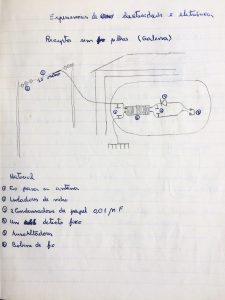 Experiências de electricidade e eletrónica
Receptor sem pilhas (Galena)
10 metros
Material
① Fio para a antena
② Isoladores de vidro
③ 2 Condensadores de papel 0,01 µF
④ Um detecto fixo
⑤ Auscultadores
⑥ Bobine de fio